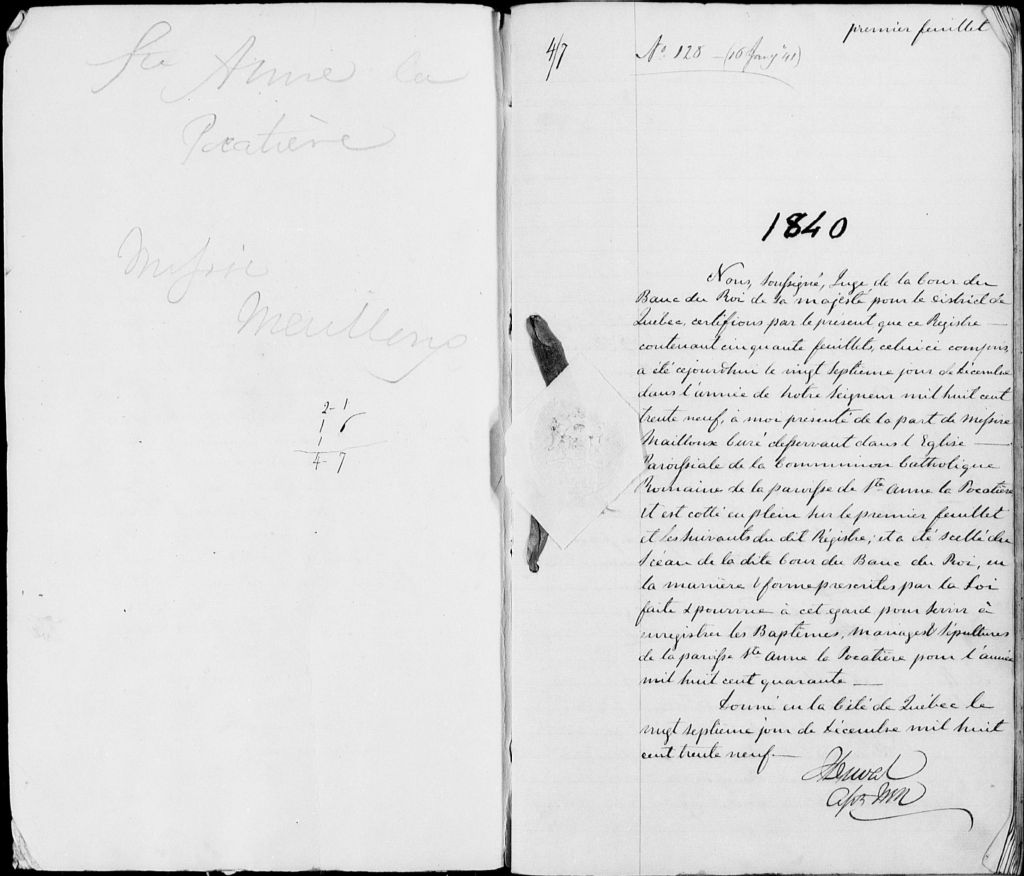 Ste Anne la
Pocatière
Messire
Mailloux
2-1
1 6
1
4-7
premier feuillet
4/7
No. 128 - (16 Janvr 41)
1840
Nous, Soussigné, Juge de la Cour du
Banc du Roi de sa majesté pour le district de
Québec, certifions par le présent que ce Registre —
contenant cinquante feuillets, celui ci compris,
a été cejourd'hui le vingt septieme jour de décembre
dans l'année de notre Seigneur mil huit cent
trente neuf, à moi présenté de la part de Messire
Mailloux Curé desservant dans l'Eglise —
Paroissiale de la Communion Catholique
Romaine de la paroisse de Ste Anne la Pocatière
et est cotté en plein sur le premier feuillet
et les suivants du dit Régistre; et a été scellé du
Sceau de la dite Cour du Banc du Roi, en
la maniere & forme prescrites par la Loi
faite & pourvue à cet egard pour servir à
enregistrer les Baptêmes, mariages & Sépultures
de la paroisse Ste Anne la Pocatière pour l'année
mil huit cent quarante —
Donné en la Cité de Québec le
vingt septieme jour de décembre mil huit
cent trente neuf —